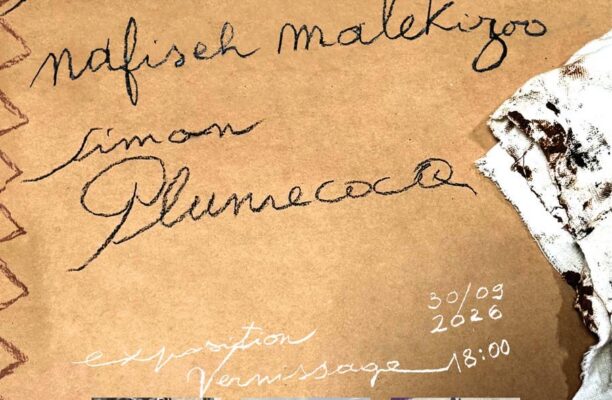 nafiseh malekizoo
simon
Plumecocq
30/09
2026
exposition
Vernissage 18:00